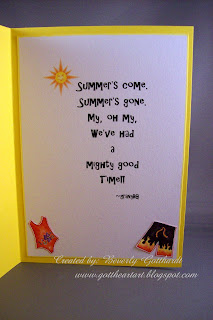 Summer's come.
Summer's gone.
My, oh My,
We've Had
a
Mighty good
Time!!
Created by: Beverly Gotthardt
www.gottheartart.blogspot.com